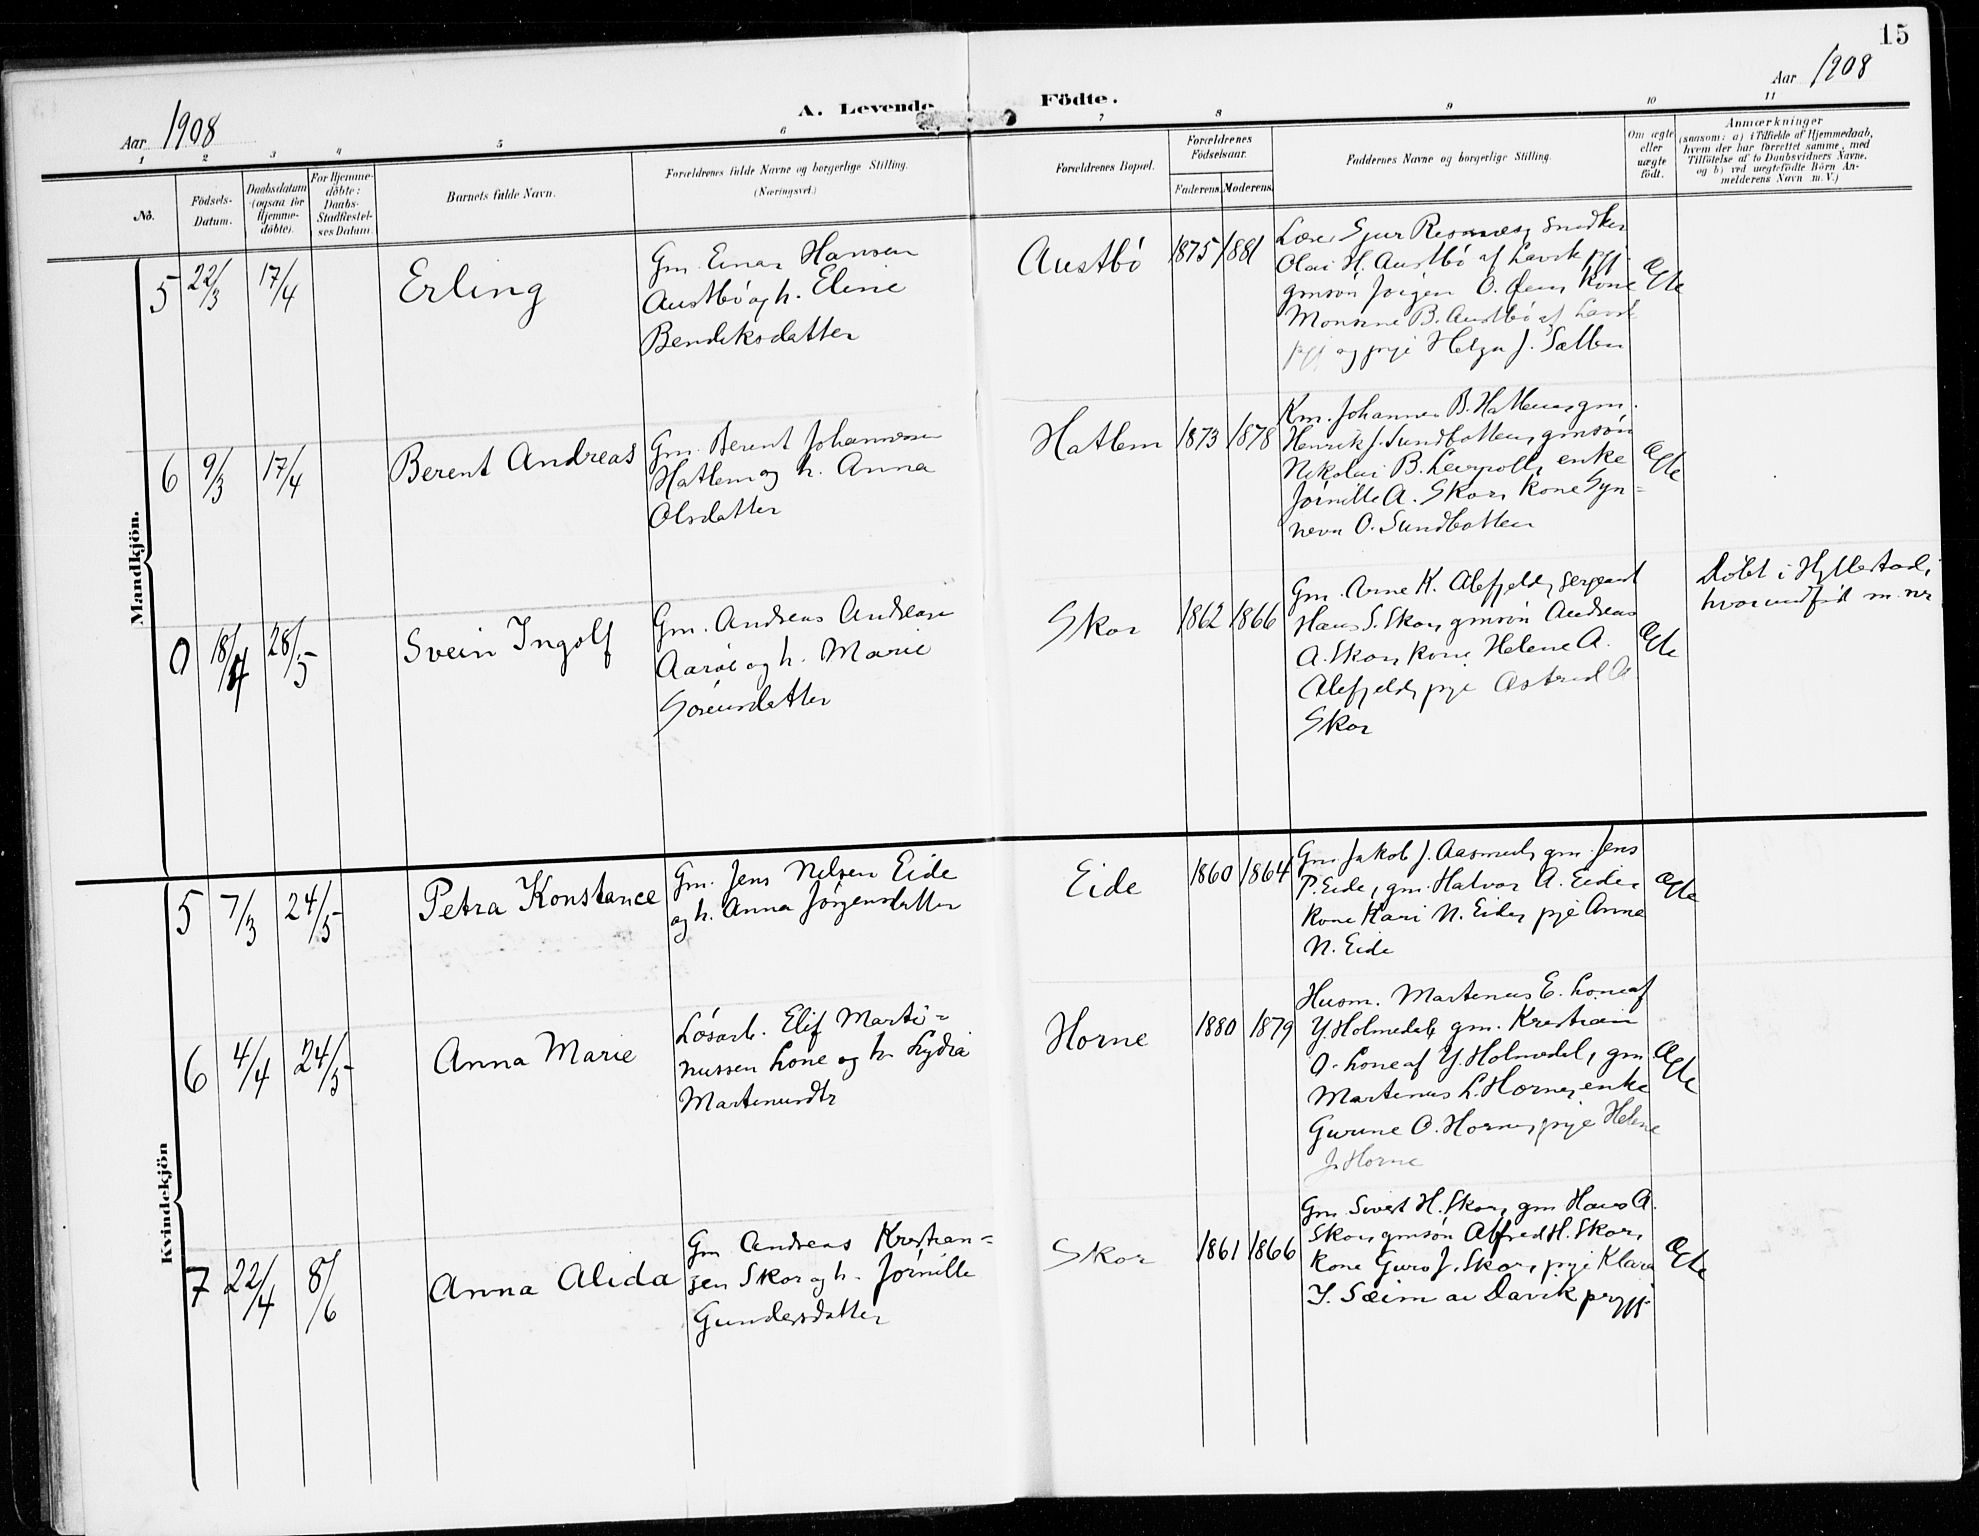 15
Aar 1908
A. Levende Födte.
Aar 1908
1 2 3 4 5 6 7 8 9 10 11
No.
Födsels-
Datum.
Daabsdatum
(ogsaa for
Hjemme-
döbte).
For Hjemme-
döbte:
Daabs-
Stadfæstel-
ses Datum.
Barnets fulde Navn.
Forældrenes fulde Navne og borgerlige Stilling.
(Næringsvei.)
Forældrenes Bopæl.
Forældrenes
Födselsaar.
Faderens. Moderens.
Faddernes Navne og borgerlige Stilling.
Om ægte
eller
uægte
født.
Anmærkninger
(saasom: a) i Tilfælde af Hjemmedaab,
hvem der har forrettet samme, med
Tilföielse af to Daabsvidners Navne,
og b) ved uægtefödte Börn An-
melderens Navn m. V.)
Mandkjön.
5 22/3 17/4
Erling
Gm. Einar Hansen
Austbö og h. Eline
Bendiksdatter
Austbö
1875 1881
Lærer Sjur Risnæs, snedker
Olai H. Austbö af Lavik pgj.
gmsön Jörgen O. Øen, kone
Monsine B. Austbö af Lavik
pgj og pige Helga J. Sætten
Ægte
6 9/3 17/4
Berent Andreas
Gm. Berent Johannessen
Hatlem og h. Anna
Olsdatter
Hatlem
1873 1878
Km. Johannes B. Hatlem, gm.
Henrik J. Sundbotten, gmsön
Nikolai B. Leirpoll, enke
Jörnille A. Skor, kone Syn=
neva O. Sundbotten
Ægte
0 18/4 28/5
Svein Ingolf
Gm. Andreas Andreasen
Aaröe og h. Marie
Sörensdatter
Skor
1862 1866
Gm. Arne K. Alefjeld, sergeant
Hans S. Skor, gmsön Andreas
A. Skor, kone Helene A.
Alefjeld, pige Astrid A
Skor
Ægte
Döbt i Hyllestad,
hvor indfört m. nr
Kvindekjön
5 7/3 24/5
Petra Konstance
Gm. Jens Nilsen Eide
og h. Anna Jörgensdatter
Eide
1860 1864
Gm. Jakob J. Aasmul, gm. Jens
P. Eide, gm. Halvor A. Eide,
kone Kari N. Eide, pige Anna
N. Eide
Ægte
6 4/4 24/5
Anna Marie
Lösarb. Elif Marti=
nussen Lone og h. Lydia
Martinusdtr
Horne
1880 1879
Husm. Martinus E. Lone af
Y. Holmedal, gm. Kristian
O. Lone af Y. Holmedal, gm.
Martinus L. Horne, enke
Gurine O. Horne, pige Helene
J. Horne
Ægte
7 22/4 8/6
Anna Alida
Gm Andreas Kristian=
sen Skor og h. Jörnille
Gundersdatter
Skor
1861 1866
Gm. Sivert H. Skor, gm Hans A.
Skor, gmsön Alfred H. Skor,
kone Guro J. Skor, pige Klara
I. Sæim av Davik prgj.
Ægte